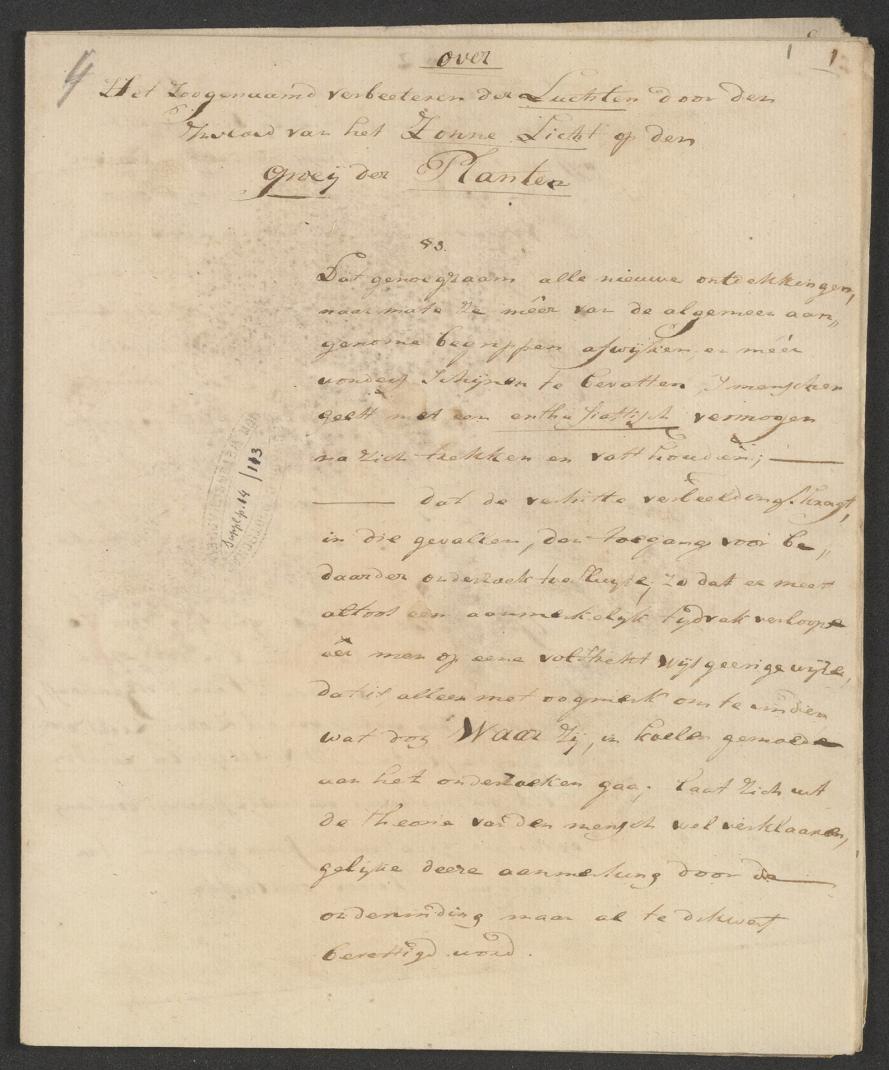 4
1
over
Het Zoogenaamd verbeeteren der Luchten door den
Invloed van het Zonne Licht op den
groeij der Planten
§ 3.
Dat genoegzaam alle nieuwe ontdekkingen,
naar mate ze méér van de algemeen aan„
genome begrippen afwijken, en méér
wonders schijnen te bevatten, 's menschen
geest met een enthusiastisch vermogen
na zich trekken en vast houden; —
— dat de verhitte verbeeldings kragt,
in die gevallen, den toegang voor be„
daarder onderzoek te sluyte, zo dat er meest
altoos een aanmerkelijk tijdvak verloope
eer men op eene volstrekt wijsgeerige wijze,
dat is alleen met oogmerk om te vinden
wat dog Waar zij, in koelen gemoede
aan het onderzoeken gaa; laat zich uit
de theorie van den mensch wel verklaaren,
gelijke deeze aanmerking door de —
ondervinding maar al te dikwerf
bevestigd word.
Supplp. 14 / 113